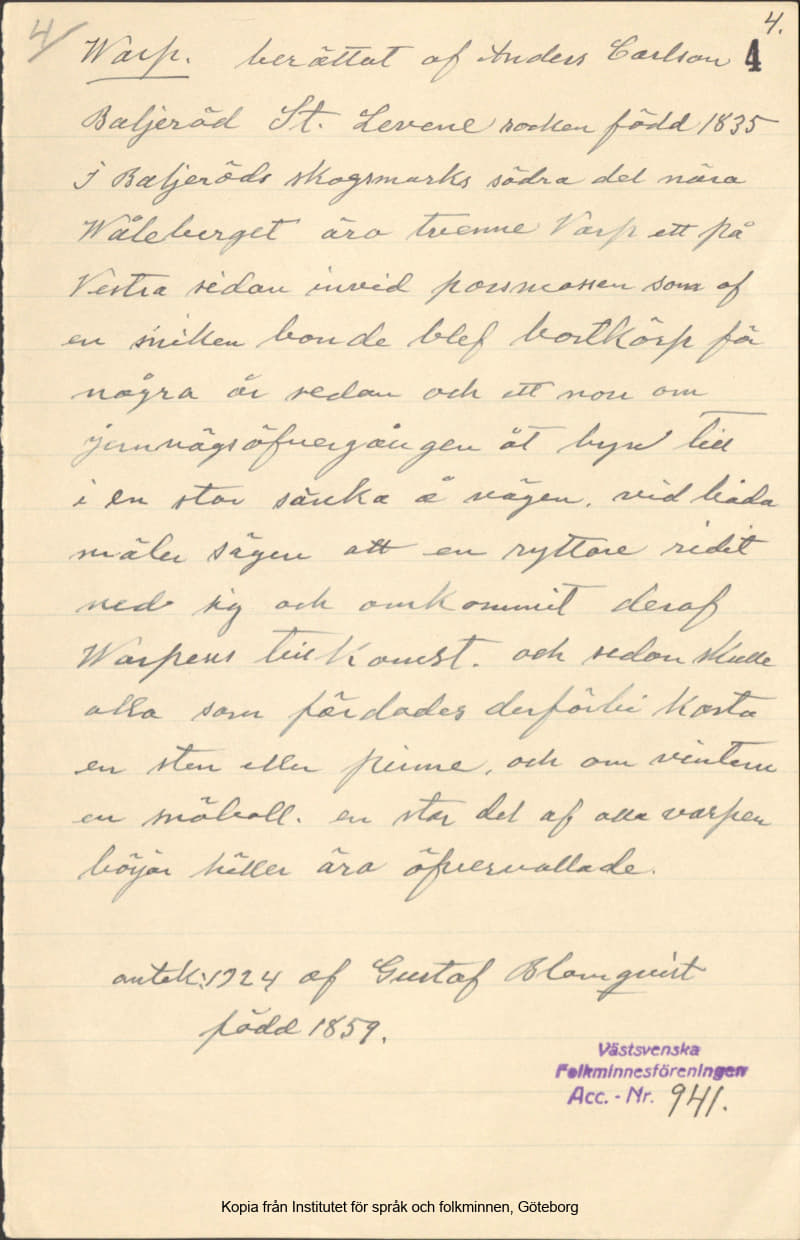 4/
4.
Warp. berättat af Anders Carlson 4
Baljeröd St. Levene socken född 1835
I Baljeröds skogsmarks södra del nära
Wåleberget äro tvenne Varp ett på
Vestra sidan invid porsmossen som af
en sniken bonde blef bortkörp för
några år sedan och ett norr om
jernvägsöfvergången åt byn till
i en stor sänka å vägen. vid båda
mäler sägen att en ryttare ridit
ned sig och omkommit deraf
Warpens tillkomst. och sedan skulle
alla som färdades derförbi kasta
en sten eller pinne, och om vintern
en snöboll. en stor del af alla varpen
böyar häller äro öfvervallade.
antek: 1924 af Gustaf Blomquist
född 1859.
Västsvenska
Folkminnesföreningen
Acc. - Nr. 941.
Kopia från Institutet för språk och folkminnen, Göteborg